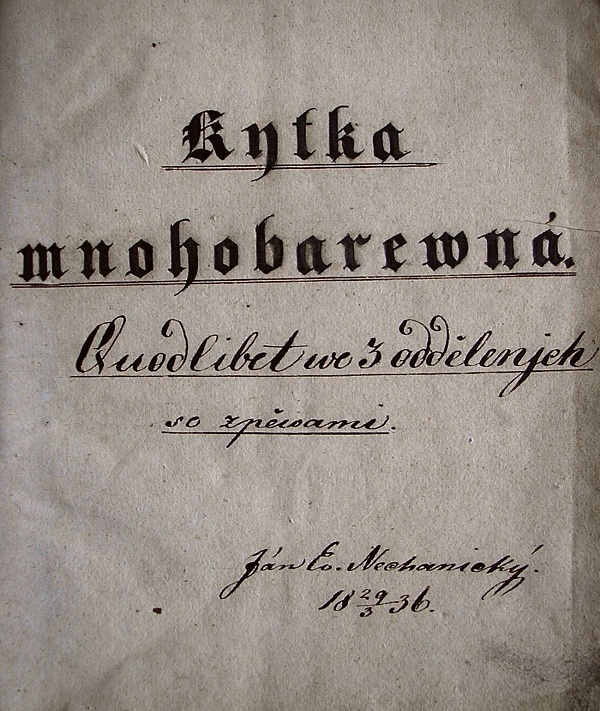 Kytka
mnohobarewná.
Quodlibet we 3 odděleních
se zpěwami.
Ján Ev. Nechanický.
18 29/3 36.